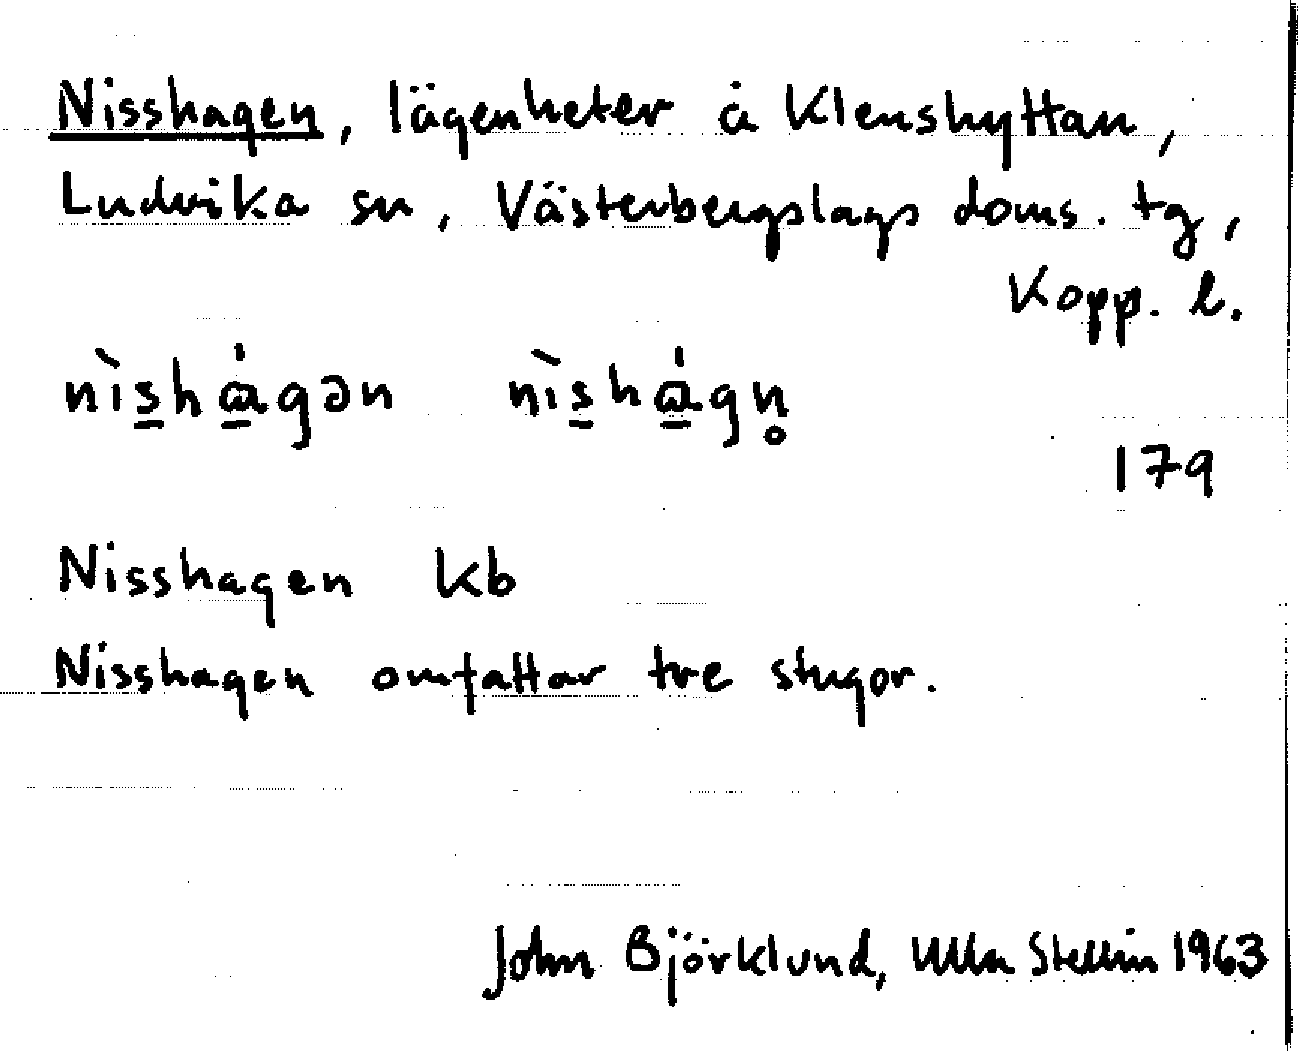 Nisshagen, lägenheter å Klenshyttan,
Ludvika sn, Västerbergslags doms. tg,
Kopp. l.
nìs̲hɑ̲́gən nìs̲hɑ̲́gn̥
179
Nisshagen kb
Nisshagen omfattar tre stugor.
John Björklund, Ulla Stellin 1963